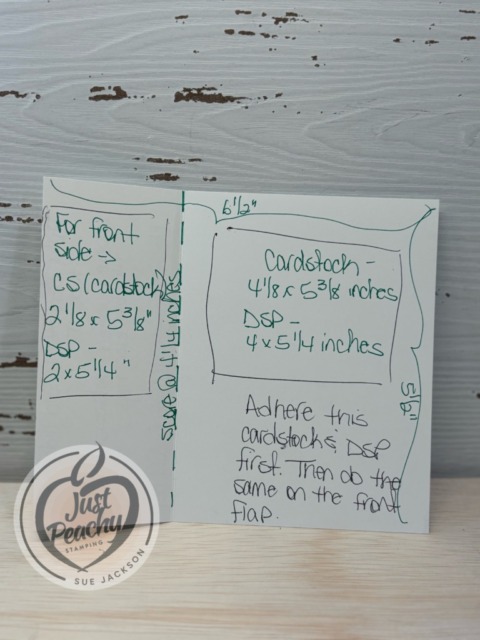 6 1/2"
For front
side →
CS (cardstock)
2 1/8 x 5 3/8"
DSP -
2 x 5 1/4"
Score @ 4 1/4 inches
Cardstock -
4 1/8 x 5 3/8 inches
DSP -
4 x 5 1/4 inches
5 1/2"
Adhere this
cardstock & DSP
first. Then do the
same on the front
flap.
Just
Peachy
STAMPING
SUE JACKSON